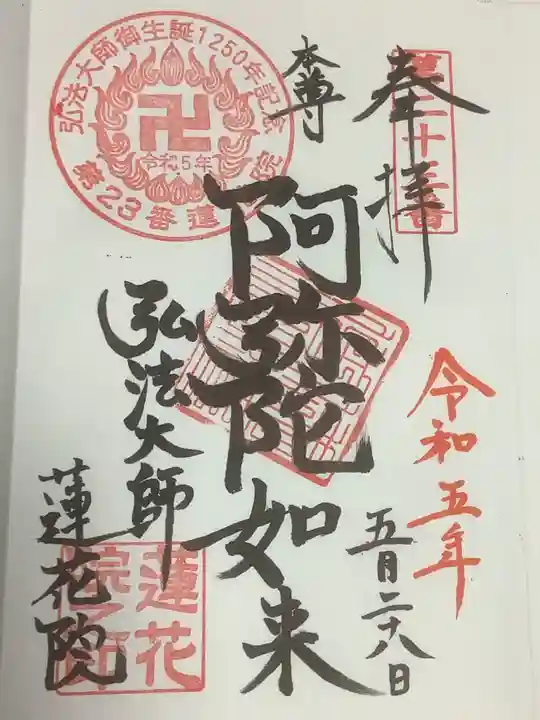 第二十三番
奉拝
令和五年
五月二十八日
本尊
阿弥陀如来
弘法大師
蓮花院
弘法大師御生誕1250年記念
令和5年
第23番蓮花院
蓮花
院之印